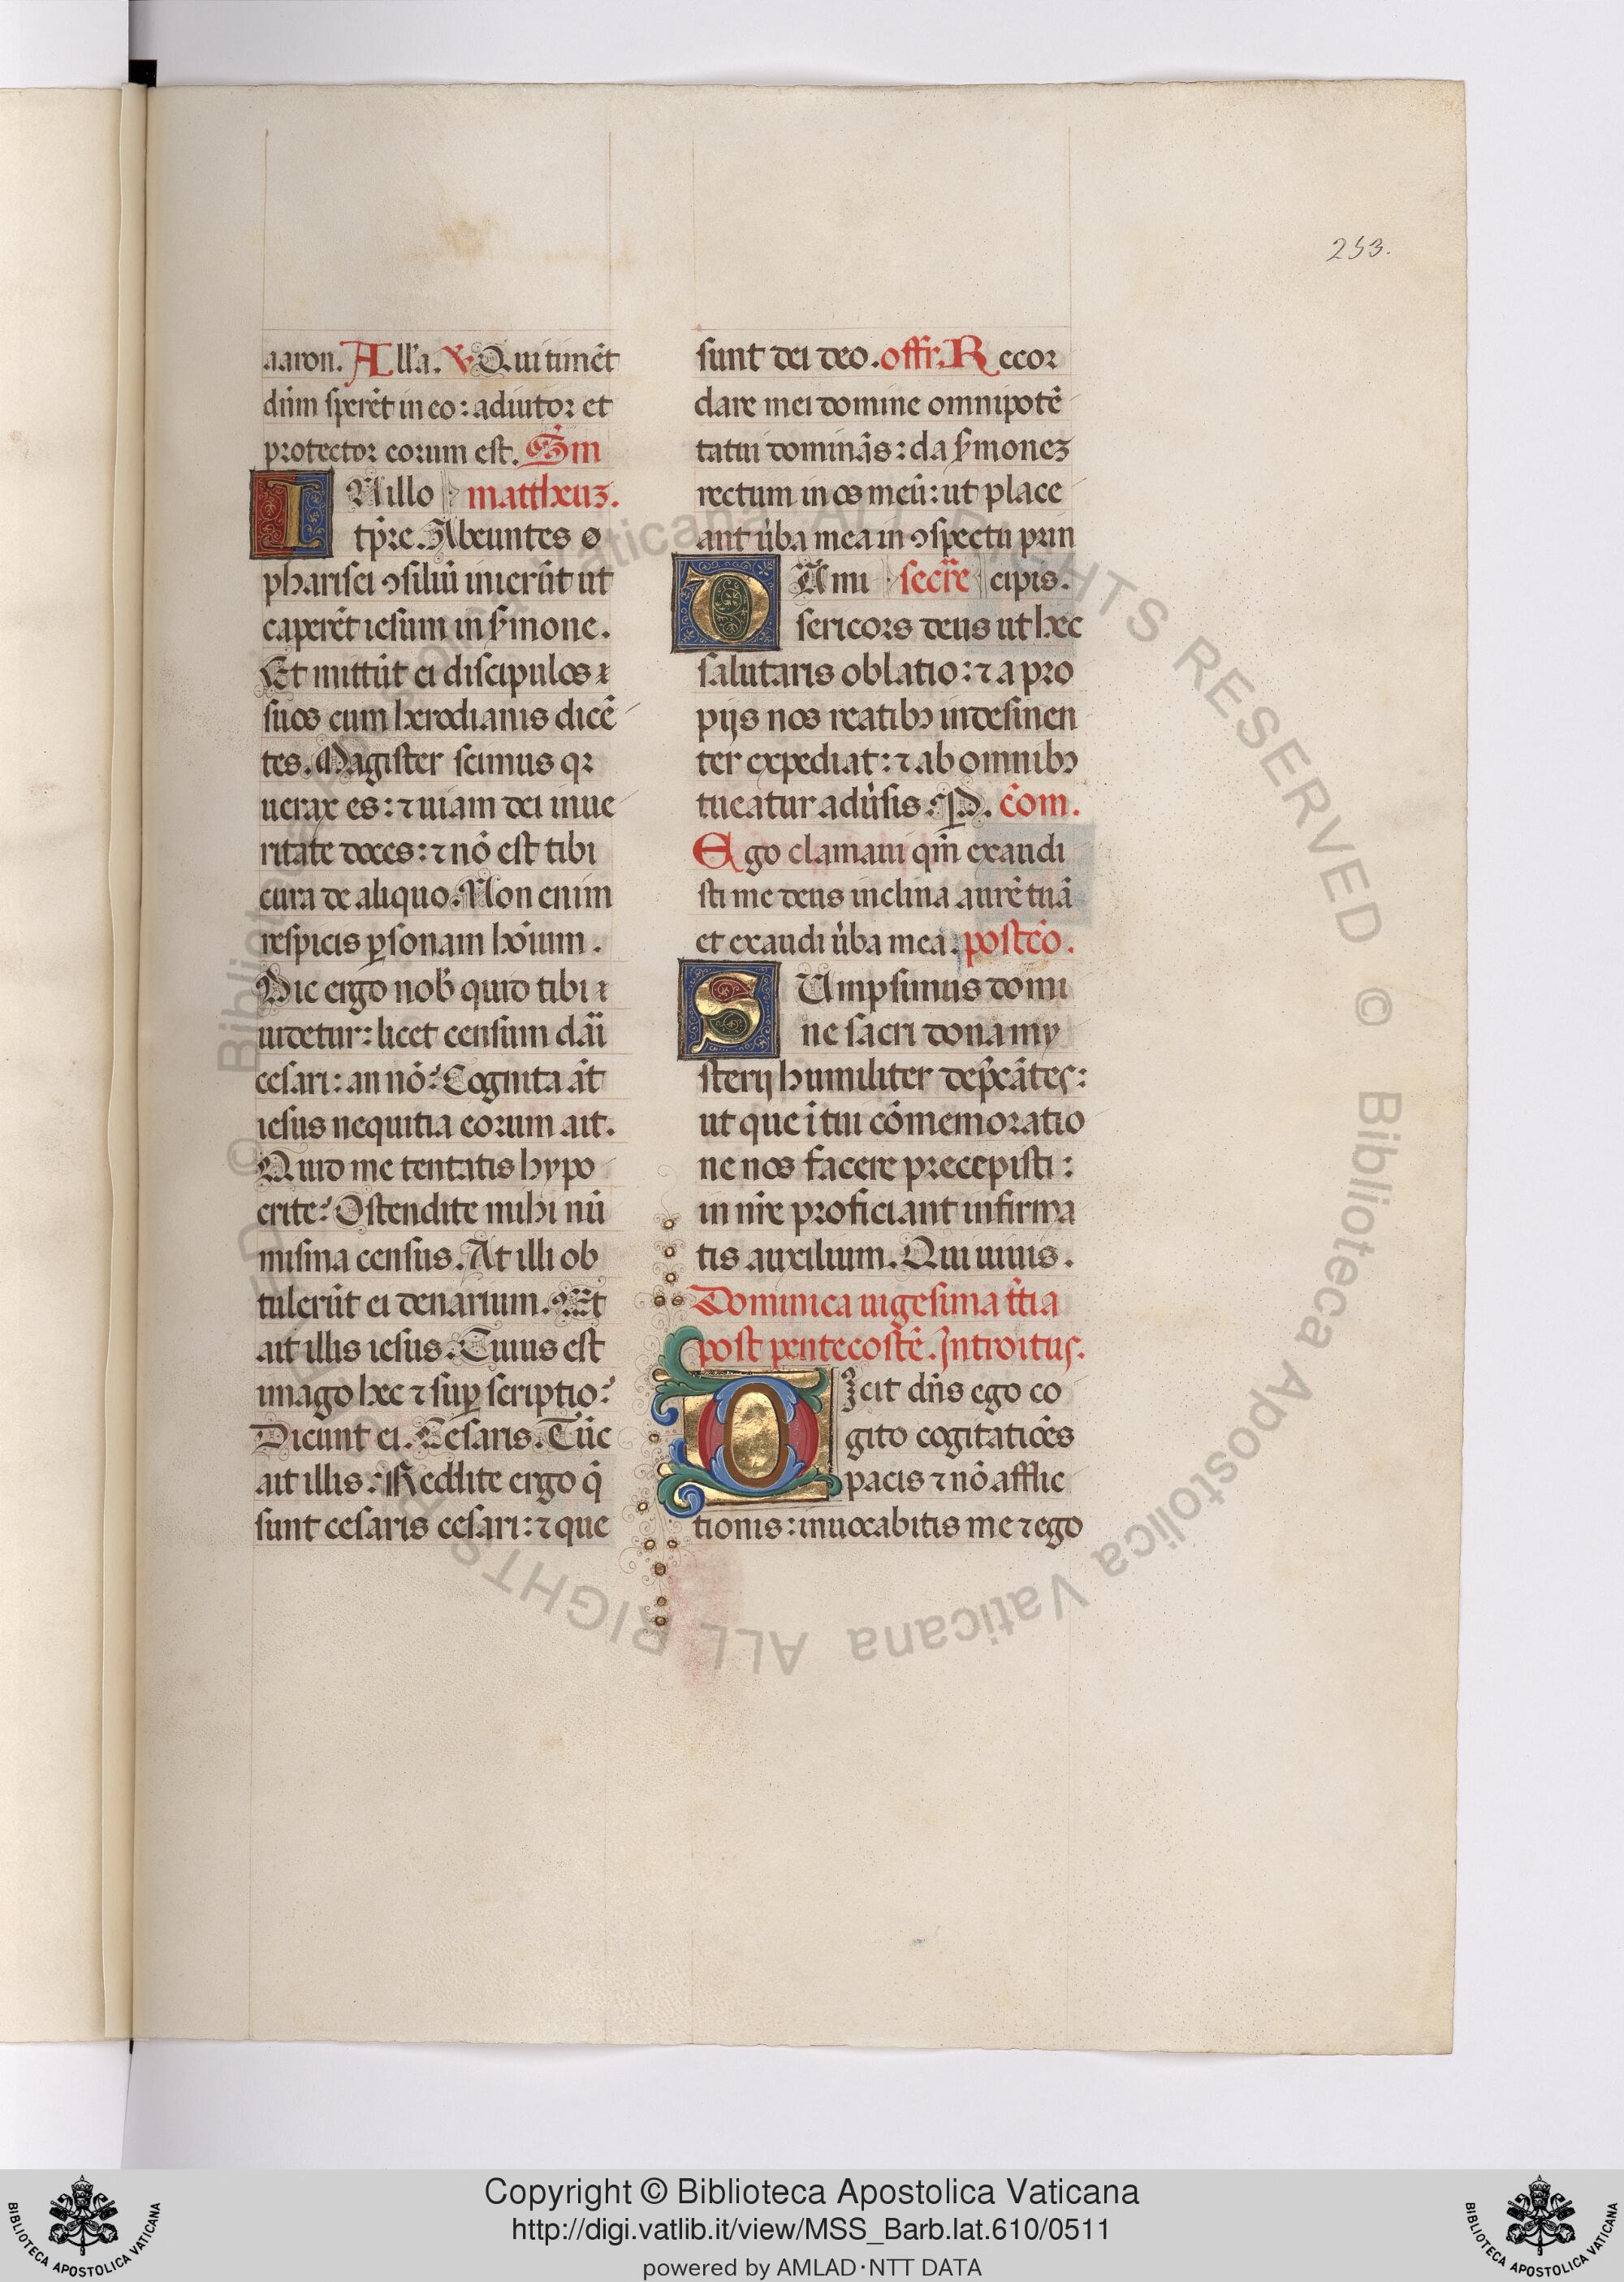 253.
aaron. All'a. V. Qui timēt
dñm sperēt in eo: adiutor et
protector eorum est. Sm
IN illo mattheuz.
tp̄re. Abeuntes
pharisei ɔsiliū inierūt ut
caperēt iesum in s̄mone.
Et mittūt ei discipulos
suos cum herodianis dicē
tes. Magister scimus qꝛ
uerax es: ⁊ uiam dei in ue
ritate doces: ⁊ nō est tibi
cura de aliquo. Non enim
respicis ꝑsonam hoīum.
Dic ergo nob̄ quid tibi
uidetur: licet censum dāi
cesari: an nō? Cognita āt
iesus nequitia eorum ait.
Quid me tentatis hypo
crite? Ostendite mihi nū
misma census. At illi ob
tulerūt ei denarium. Et
ait illis iesus. Cuius est
imago hec ⁊ suꝑ scriptio?
Dicunt ei. Cesaris. Tūc
ait illis. Reddite ergo q̄
sunt cesaris cesari: ⁊ que
sunt dei deo. offr. Recor
dare mei domine omnipotē
tatui dominās: da s̄monez
rectum in os meū: ut place
ant ūba mea in ɔspectu prin
DA mi secr̄e cipis.
sericors deus ut hec
salutaris oblatio: ⁊ a pro
pijs nos reatibꝫ indesinen
ter expediat: ⁊ ab omnibꝫ
tueatur adūsis. P. cōm.
Ego clamaui qm̄ exaudi
sti me deus inclina aurē tuā
et exaudi ūba mea. postcō.
SUmpsimus domi
ne sacri dona my
sterij humiliter dep̄cātes:
ut que ī tui cōmemoratio
ne nos facere precepisti:
in nr̄e proficiant infirma
tis auxilium. Qui uiuis.
Dominica uigesima t̄tia
post pentecostē. Introitus.
DIcit dñs ego co
gito cogitatiōes
pacis ⁊ nō afflic
tionis: inuocabitis me ⁊ ego
© Biblioteca Apostolica Vaticana ALL RIGHTS RESERVED © Biblioteca Apostolica Vaticana ALL RIGHTS RESERVED
Copyright © Biblioteca Apostolica Vaticana
http://digi.vatlib.it/view/MSS_Barb.lat.610/0511
powered by AMLAD·NTT DATA
BIBLIOTECA APOSTOLICA VATICANA
BIBLIOTECA APOSTOLICA VATICANA